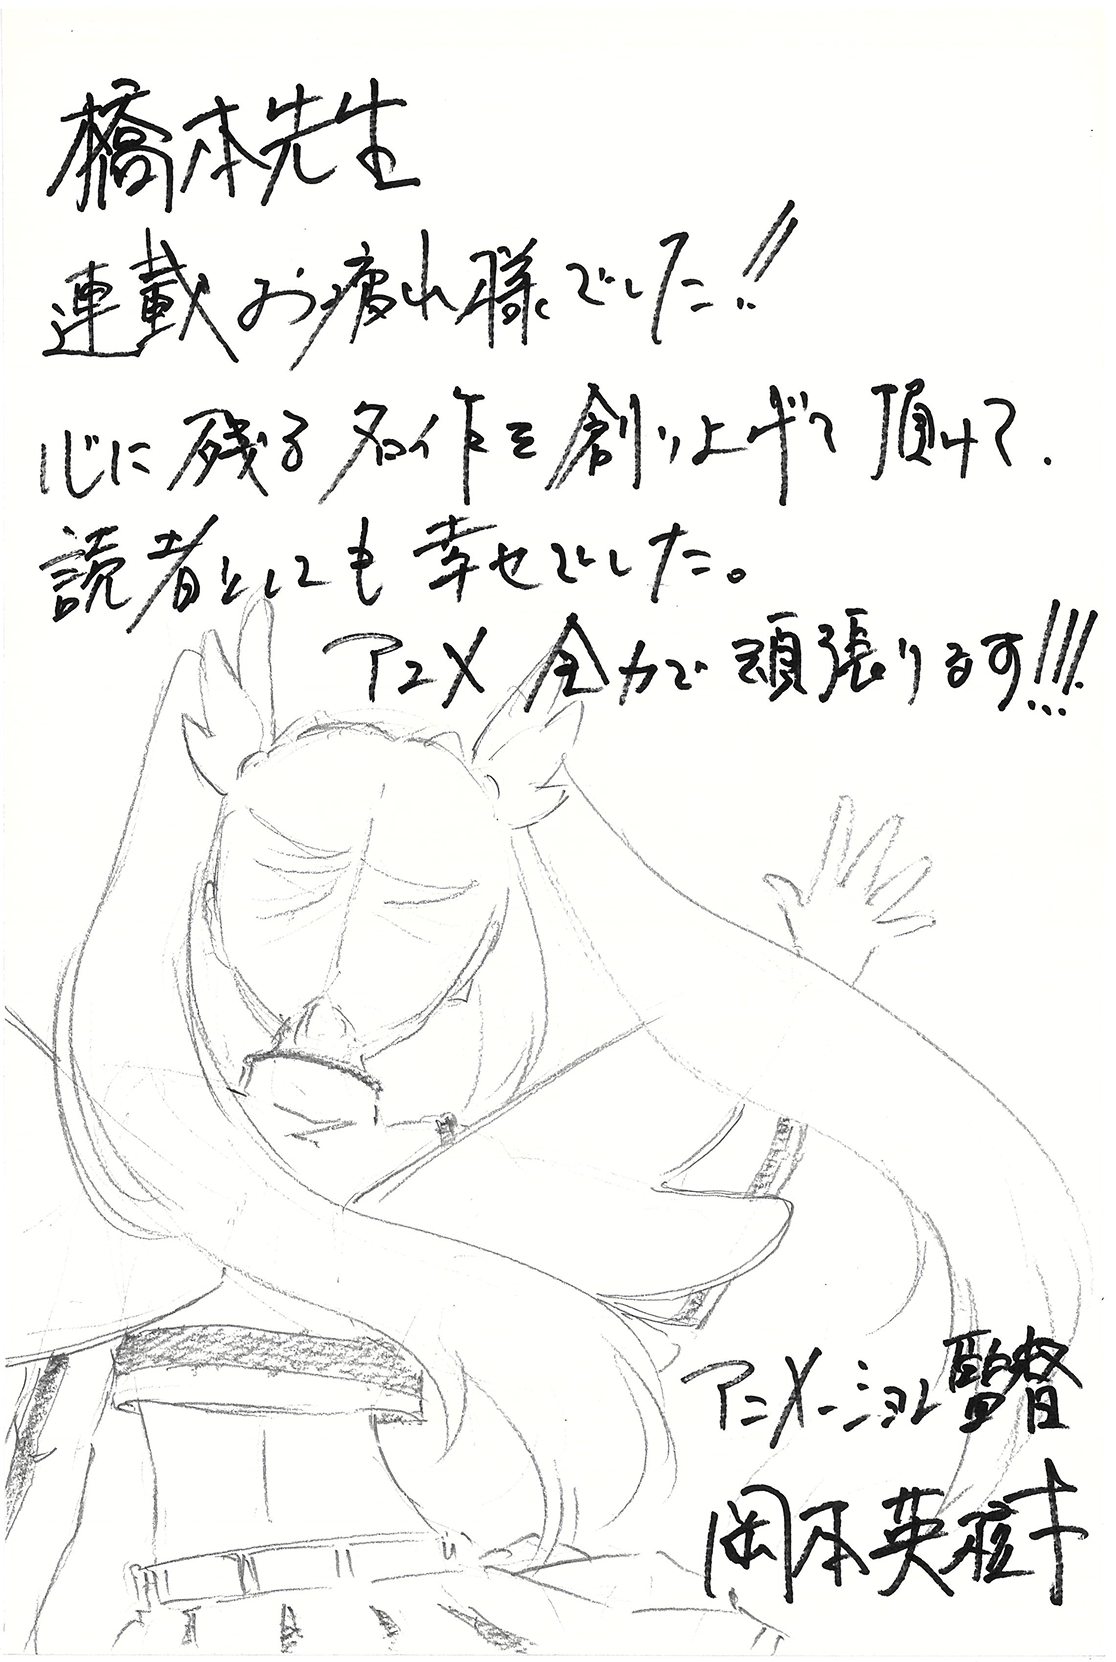 橋本先生
連載お疲れ様でした!!
心に残る名作を創り上げて頂けて、
読者としても幸せでした。
アニメ全力で頑張ります!!!
アニメーション監督
岡本英樹